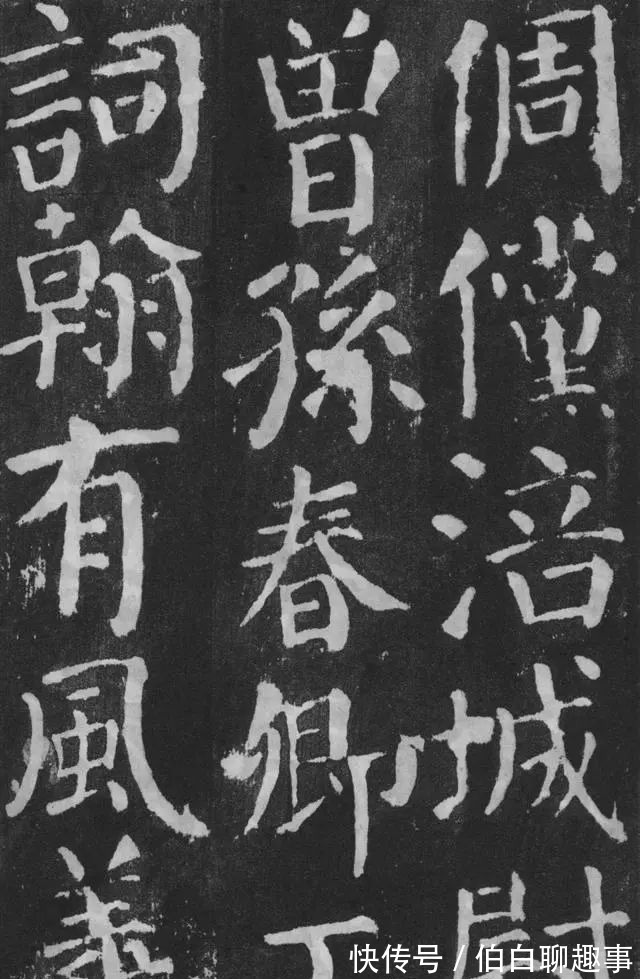 倜儻涪城尉
曾孫春卿工
詞翰有風義
快传号 / 伯白聊趣事